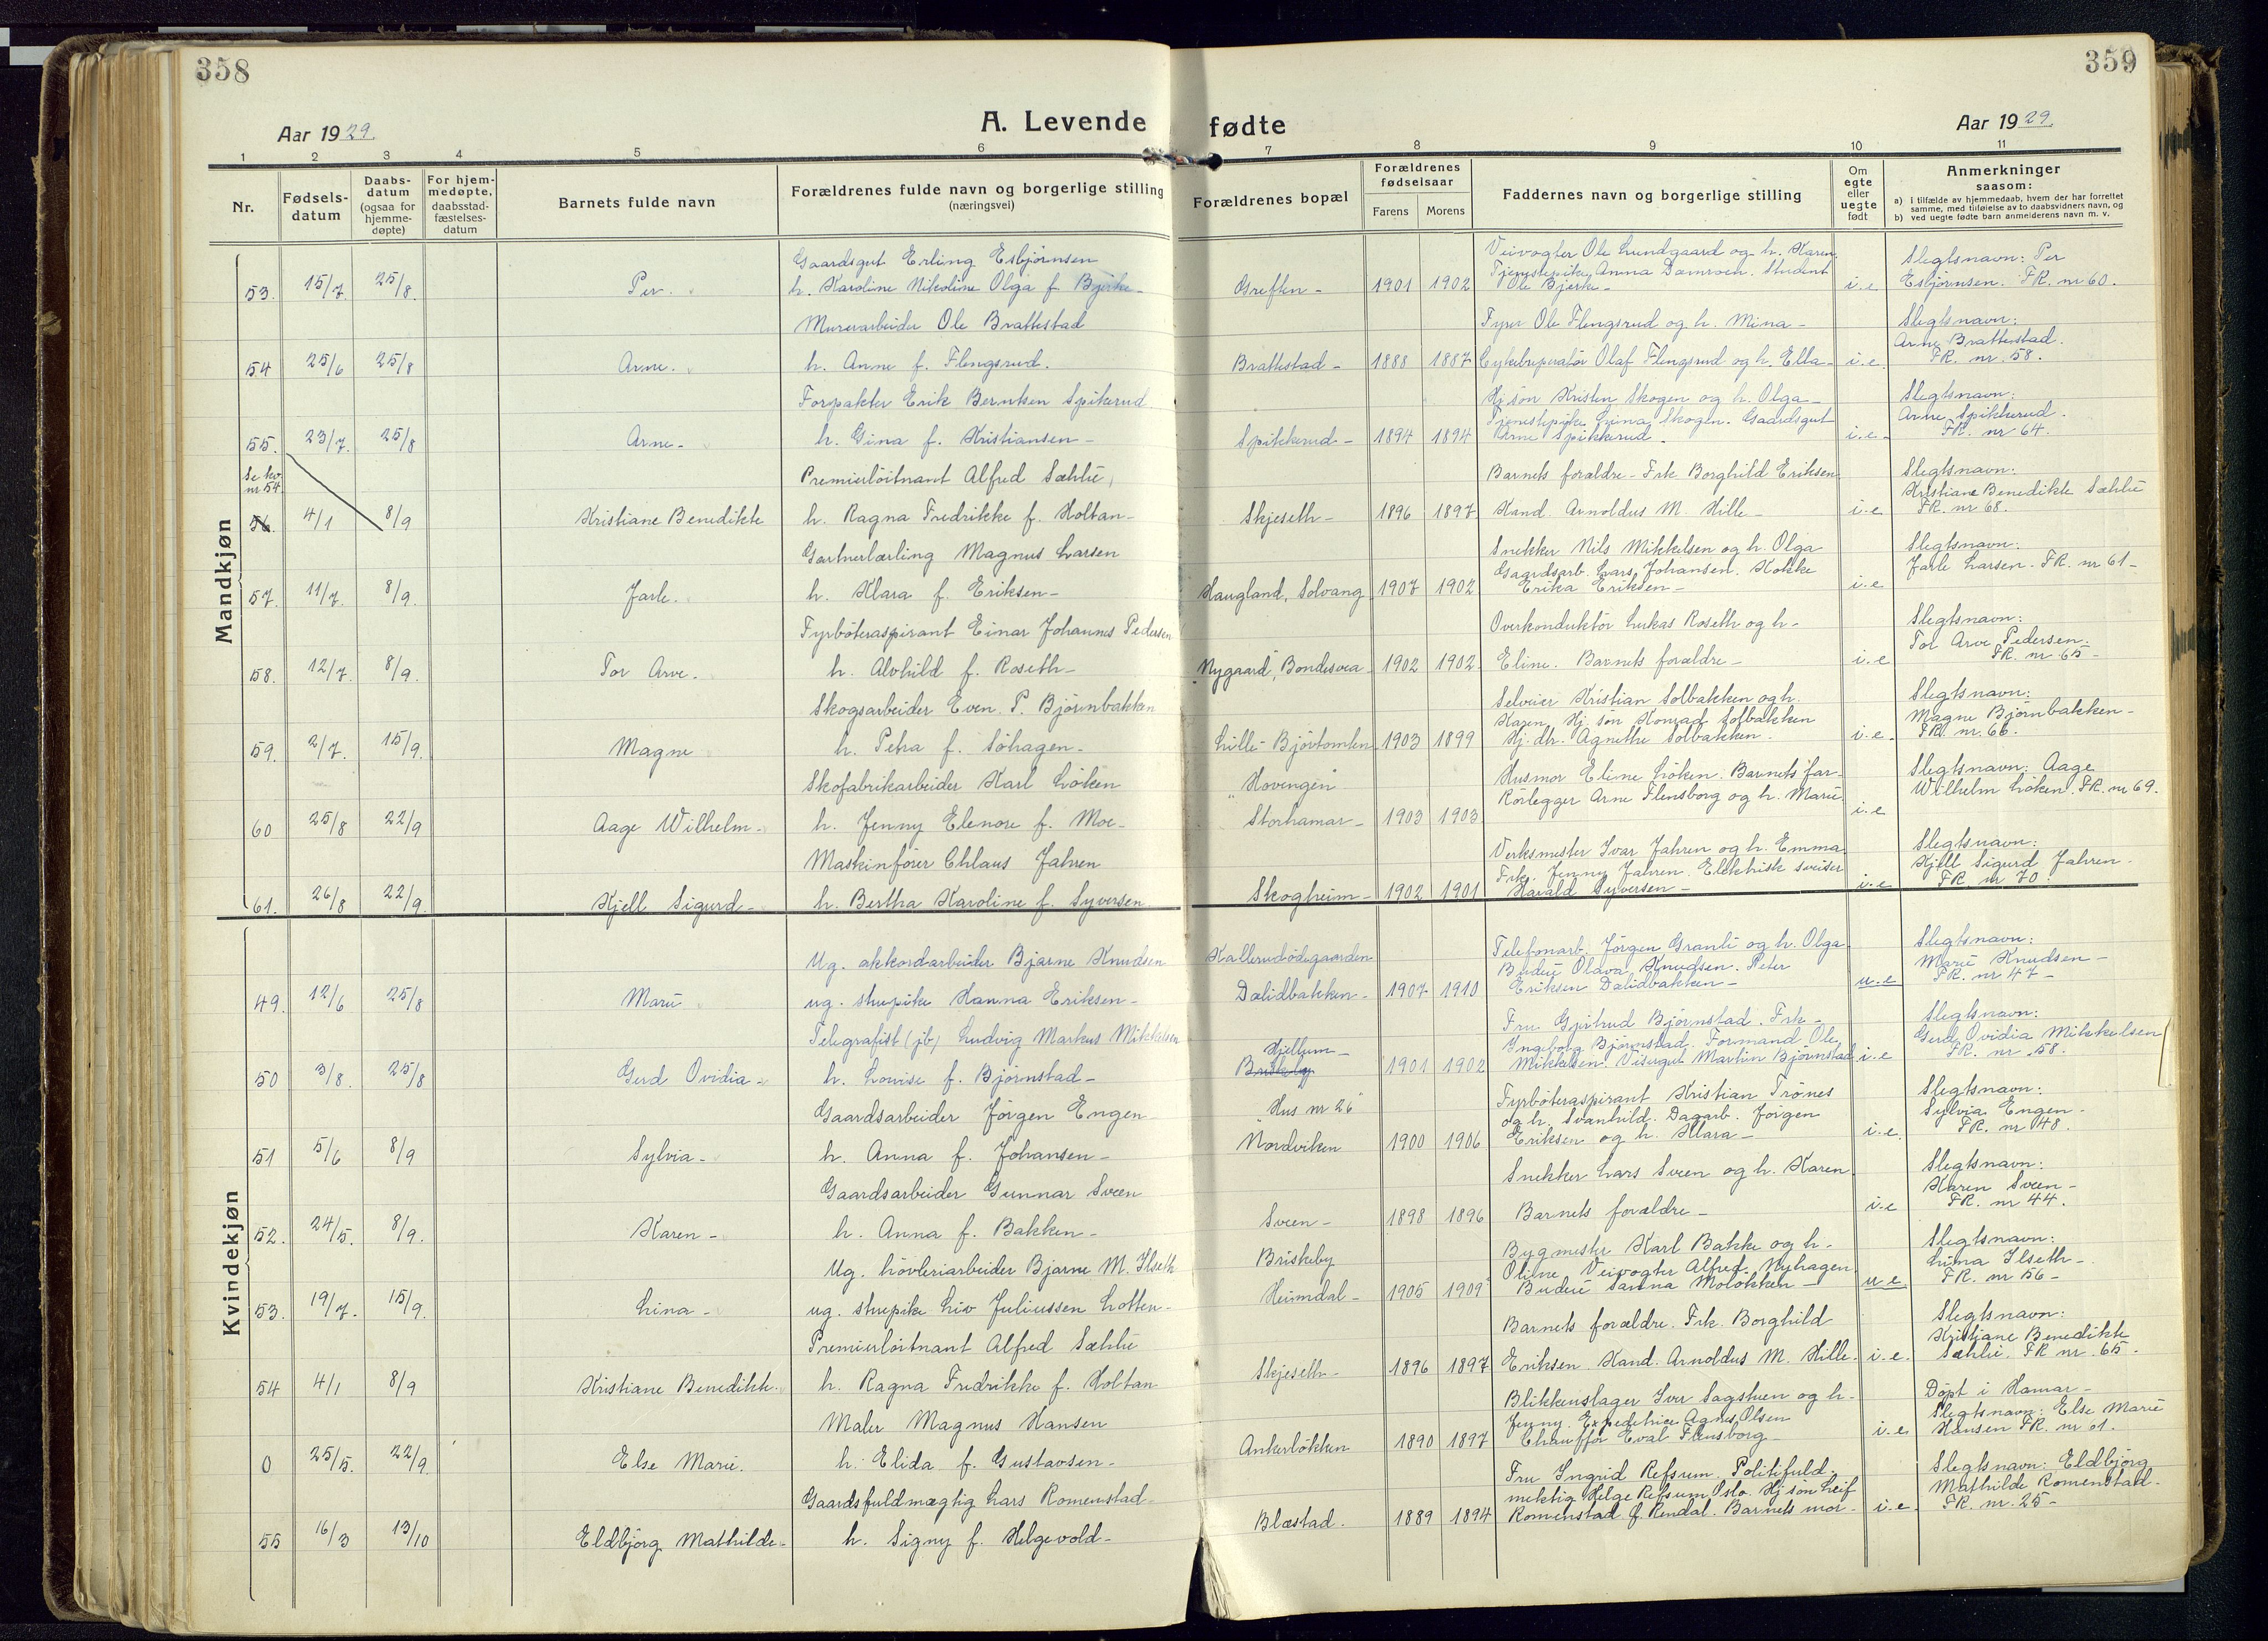 358
359
A. Levende fødte
Aar 1929.
Aar 1929.
1 2 3 4 5 6 7 8 9 10 11
Nr.
Fødsels-
datum
Daabs-
datum
(ogsaa for
hjemme-
døpte)
For hjem-
medøpte,
daabsstad-
fæstelses-
datum
Barnets fulde navn
Forældrenes fulde navn og borgerlige stilling
(næringsvei)
Forældrenes bopæl
Forældrenes
fødselsaar
Farens Morens
Faddernes navn og borgerlige stilling
Om
egte
eller
uegte
født
Anmerkninger
saasom:
a) i tilfælde av hjemmedaab, hvem der har forrettet
samme, med tilføielse av to daabsvidners navn, og
b) ved uegte fødte barn anmelderens navn m. v.
Mandkjøn
53. 15/7. 25/8. Per.
Gaardsgut Erling Esbjørnsen
h. Karoline Nikoline Olga f. Bjerke-
Grefsen - 1901 1902
Veivogter Ole Lundgaard og h. Karen.
Tjenestepike Anna Damroen. Student
Ole Bjerke-
i.e
Slegtsnavn: Per
Esbjørnsen. FR. nr 60.
54 25/6 25/8 Arne.
Murerarbeider Ole Brattestad
h. Anne f. Flengsrud.
Brattestad - 1888 1887
Fyrer Ole Flengsrud og h. Mina-
Cykelreperatør Olaf Flengsrud og h. Ella-
i.e.
Slegtsnavn:
Arne Brattestad.
FR. nr. 58.
55. 23/7. 25/8 Arne-
Forpakter Erik Berntsen Spikerud
h. Gina f. Kristiansen-
Spikkerud - 1894 1894
Hj. søn Kristen Skogen og h. Olga-
Tjenestepike Lina Skogen. Gaardsgut
Arne Spikkerud-
i.e-
Slegtsnavn:
Arne Spikkerud.
FR. nr 64.
Se kv.
nr 54
56. 4/1 8/9 Kristiane Benedikte
Premierløitnant Alfred Sæhlie,
h. Ragna Fredrikke f. Holtan-
Skjeseth- 1896 1897
Barnets forældre- Frk Borghild Eriksen
Kand. Arnoldus M. Hille-
i.e
Slegtsnavn:
Kristiane Benedikte Sæhlie
FR. nr 68.
57. 11/7. 8/9. Jarle.
Gartnerlærling Magnus Larsen
h. Klara f. Eriksen-
Haugland, Solvang 1907 1902
Snekker Nils Mikkelsen og h. Olga
Gaardsarb. Lars Johansen. Kokke
Erika Eriksen-
i.e
Slegtsnavn:
Jarle Larsen. FR. nr 61-
58. 12/7. 8/9. Tor Arve.
Fyrbøteraspirant Einar Johannes Pedersen
h. Alvhild f. Roseth-
Nygaard, Bondesvea- 1902 1902
Overkonduktør Lukas Roseth og h-
Eline. Barnets forældre-
i.e
Slegtsnavn:
Tor Arve Pedersen.
FR. nr. 65-
59. 2/7. 15/9. Magne
Skogsarbeider Even. P. Bjørnbakken
h. Petra f. Søhagen-
Lille-Bjørtomten 1903 1899
Selveier Kristian Solbakken og h.
Karen Hj. søn Konrad Solbakken
Hj. dtr. Agnethe Solbakken.
i.e-
Slegtsnavn:
Magne Bjørnbakken-
FR. nr. 66.
60 25/8 22/9 Aage Wilhelm-
Skofabrikarbeider Karl Løken
h. Jenny Elenore f. Moe-
"Hovengen"
Storhamar- 1903 1903
Husmor Eline Løken. Barnets far-
Rørlegger Arne Flensborg og h. Marie
i.e
Slegtsnavn: Aage
Wilhelm Løken. FR. nr 69.
61. 26/8 22/9. Kjell Sigurd-
Maskinfører Chlaus Jahren
h. Bertha Karoline f. Syversen
Skogheim- 1902 1901
Verksmester Ivar Jahren og h. Emma
Frk. Jenny Jahren. Elektrisk sveiser
Harald Syversen-
i.e
Slegtsnavn:
Kjell Sigurd Jahren.
FR nr 70.
Kvindekjøn
49. 12/6 25/8 Marie
Ug. akkordarbeider Bjarne Knudsen
ug. stuepike Hanna Eriksen-
Kallerudødegaarden
Dælidbakken- 1907 1910
Telefonarb. Jørgen Granli og h. Olga.
Budeie Olava Knudsen. Peter
Eriksen Dælidbakken-
u.e
Slegtsnavn:
Marie Knudsen-
FR. nr 47-
50 3/8. 25/8 Gerd Ovidia-
Telegrafist (jb) Ludvig Markus Mikkelsen
h. Lovise f. Bjørnstad-
Hjellum-
Briskeby 1901 1902
Fru Gjertrud Bjørnstad. Frk-
Ingeborg Bjørnstad. Formand Ole
Mikkelsen. Visergut Martin Bjørnstad
i.e
Slegtsnavn:
Gerd Ovidia Mikkelsen
FR. nr. 58.
51 5/6 8/9 Sylvia-
Gaardsarbeider Jørgen Engen
h. Anna f. Johansen-
"Hus nr 26"
Nordviken 1900 1906
Fyrbøteraspirant Kristian Trønes
og h. Svanhild. Dagarb. Jørgen
Eriksen og h. Klara-
i.e.
Slegtsnavn:
Sylvia Engen-
FR. nr 48.
52. 24/5. 8/9. Karen-
Gaardsarbeider Gunnar Sveen
h. Anna f. Bakken-
Sveen- 1898 1896
Snekker Lars Sveen og h. Karen.
Barnets forældre-
i.e
Slegtsnavn:
Karen Sveen-
FR. nr 44.
53. 19/7. 15/9. Lina-
Ug. høvleriarbeider Bjarne M. Ilseth
ug. stuepike Liv Juliussen Lotten-
Briskeby
Heimdal- 1905 1909
Bygmester Karl Bakke og h-
Oline Veivogter Alfred Nyhagen
Budeie Sanna Moløkken-
u.e
Slegtsnavn:
Lina Ilseth-
FR. nr 56-
54 4/1 8/9 Kristiane Benedikte.
Premierløitnant Alfred Sæhlie
h. Ragna Fredrikke f. Holtan
Skjeseth- 1896 1897
Barnets forældre. Frk. Borghild
Eriksen Kand. Arnoldus M. Hille.
i.e.
Slegtsnavn:
Kristiane Benedikte
Sæhlie. FR nr. 65.
0 25/5. 22/9 Else Marie.
Maler Magnus Hansen
h. Elida f. Gustavsen-
Ankerløkken 1890 1897
Blikkenslager Iver Sagstuen og h-
Jenny. Expeditrice Agnes Olsen
Chauffør Eval Flensborg-
i.e
Døpt i Hamar-
Slegtsnavn: Else Marie
Hansen FR. nr 61.
55 16/3 13/10 Eldbjørg Mathilde-
Gaardsfuldmægtig Lars Romenstad-
h. Signy f. Helgevold-
Blæstad- 1889 1894
Fru Ingrid Refsum. Politifuld-
mektig Helge Refsum Oslo. Hj. søn Leif
Romenstad f. Rendal. Barnets mor-
i.e
Slegtsnavn: Eldbjørg
Mathilde Romenstad-
FR. nr. 25-